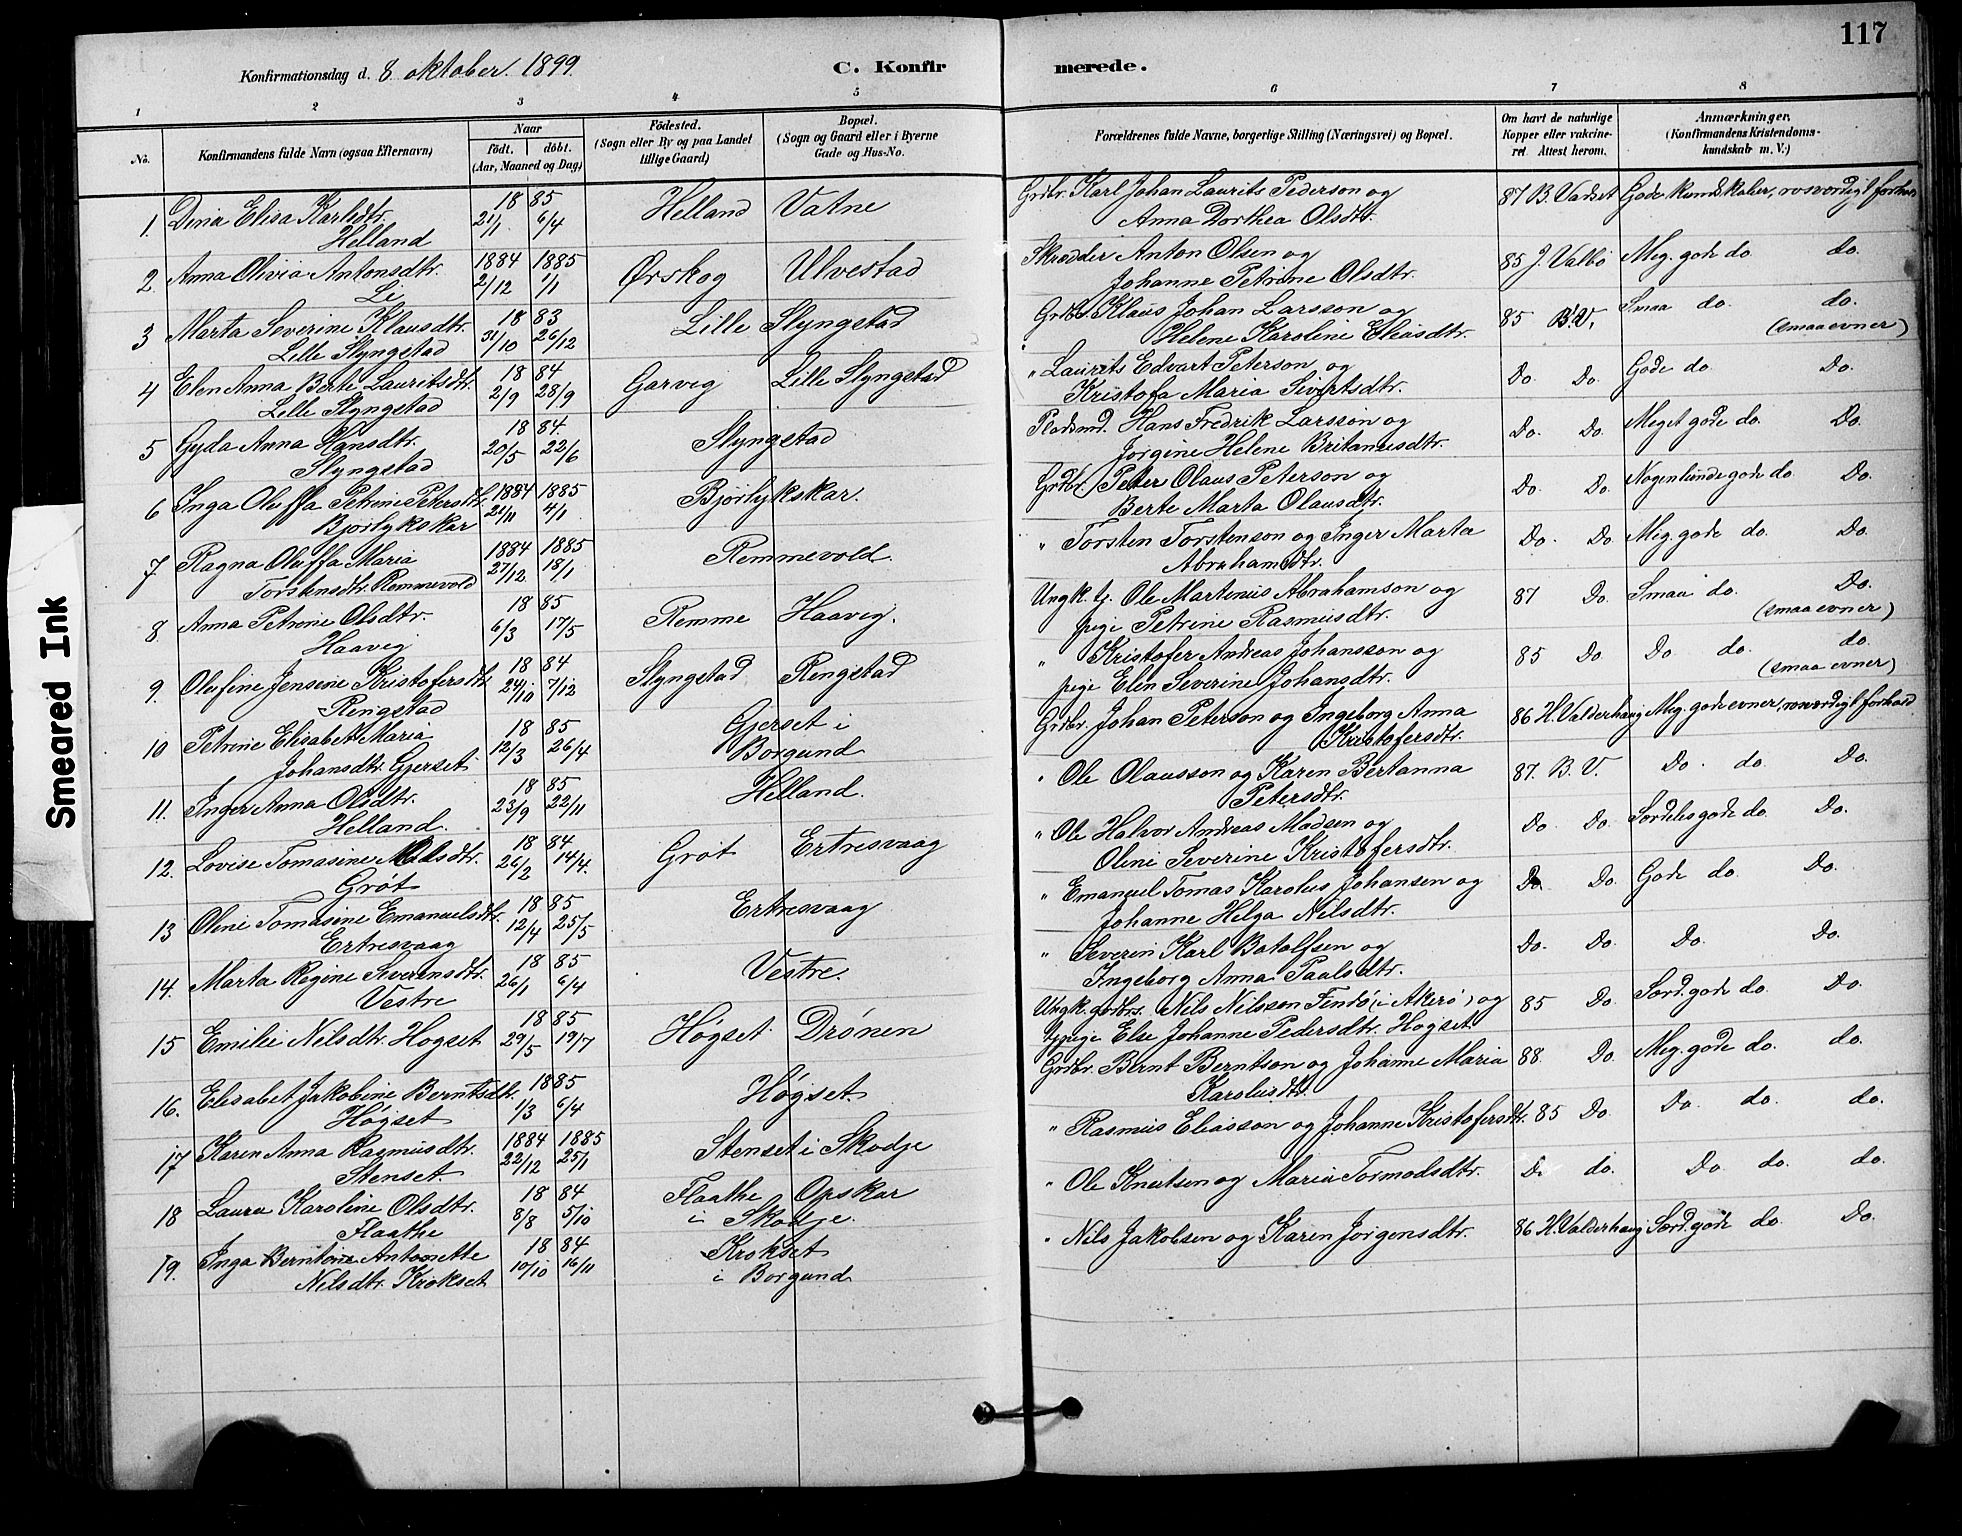 117
Konfirmationsdag d. 8. oktober. 1899.
C. Konfirmerede.
1 2 3 4 5 6 7 8
No.
Konfirmandens fulde Navn (ogsaa Efternavn)
Naar
födt. döbt.
(Aar, Maaned og Dag)
Födested.
(Sogn eller By og paa Landet
tillige Gaard)
Bopæl.
(Sogn og Gaard eller i Byerne
Gade og Hus-No.
Forældrenes fulde Navne, borgerlige Stilling (Næringsvei) og Bopæl.
Om havt de naturlige
Kopper eller vakcineret. Attest herom.
Anmærkninger.
(Konfirmandens Kristendoms-
kundskab m. V.)
Smeared Ink
1. Dina Elisa Karlsdtr. 18 85 Helland Vatne Grdbr. Karl Johan Laurits Pederson og 87 B. Vadset Gode kundskaber, rosværdigt forhold
Helland 21/1 6/4 Anna Dorthea Olsdtr.
2. Anna Olivia Antonsdtr. 1884 1885 Ørskog Ulvestad Skrædder Anton Olsen og 85 J. Valbö Meg. gode do. do.
Li 2/12 1/1 Johanne Petrine Olsdtr.
3 Marta Severine Klausdtr. 18 83 Lille Slyngstad Grdbr. Klaus Johan Larsson og 85 B.V. Smaa do. do.
Lille Slyngstad 31/10 26/12 Helene Karoline Eliasdtr. (smaa evner)
4 Elen Anna Berte Lauritsdtr. 18 84 Garvig Lille Slyngstad " Laurits Edvart Peterson og Do. Do. Gode do. Do.
Lille Slyngstad 2/9 28/9 Kristofa Maria Sivertsdtr.
5 Gyda Anna Hansdtr. 18 84. Slyngstad Pladsmd. Hans Fredrik Larsson og Do. Do. Meget gode do. Do.
Slyngstad 20/5 22/6 Jorgine Helene Britanusdtr.
6 Inga Oluffa Petrine Petersdtr. 1884 1885 Bjørlykskar. Grdbr. Peter Olaus Peterson og Do. Do. Nogenlunde gode do. Do.
Bjorlykskar 21/11 4/1 Berte Marta Olausdtr.
7 Ragna Oluffa Maria 1884 1885 Remmevold. " Torsten Torstenson og Inger Marta Do. Do. Meg. gode do. Do.
Torstensdtr. Remmevold 27/12 18/1 Abrahamsdtr.
8 Anna Petrine Olsdtr. 18 85 Remme Haavig. Ungk. tj. Ole Martinus Abrahamson og 87 Do. Smaa do. Do.
Haavig 6/3 17/5 pige Petrine Rasmusdtr. (smaa evner)
9. Olufine Jensine Kristofersdtr. 18 84 Slyngstad Rengstad " Kristofer Andreas Johansson og 85 Do Do do. do.
Rengstad 24/10 7/12 pige Elen Severine Johansdtr. (smaa evner)
10 Petrine Elisabet Maria 18 85 Gjerset i Grdbr. Johan Peterson og Ingeborg Anna 86 H. Valderhaug Meg. gode evner, rosværdigt forhold
Johansdtr. Gjerset 12/3 26/4 Borgund Kristofersdtr.
11. Inger Anna Olsdtr. 18 85 Helland. " Ole Olausson og Karen Bertanna 87. B. V. Do. do. Do.
Helland. 23/9 22/11 Petersdtr.
12. Lovise Tomasine Olsdtr. 18 84 Grøt Ertresvaag " Ole Halvor Andreas Madsen og Do Do. Særdeles gode do. Do.
Grøt 26/2 14/4. Oline Severine Kristofersdtr.
13 Oline Tomasine Emanuelsdtr. 18 85 Ertresvaag " Emanuel Tomas Karolus Johansen og Do Do. Gode do. Do.
Ertresvaag 12/4 25/5 Johanne Helga Nilsdtr.
14. Marta Regine Severinsdtr. 18 85 Vestre. " Severin Karl Botolfsen og Do. Do. Do. Do.
Vestre 26/1 6/4 Ingeborg Anna Paalsdtr.
15 Emilie Nilsdtr. Hogset 18 85 Høgset Drónen Ungk. grdbr. Nils Nilsson Findö (i Akerö) og 85 Do. Særd. gode do. Do.
29/5 19/7 tj. pige Else Johanne Pedersdtr. Hogset
16. Elisabet Jakobine Berntsdtr. 1885 Høgset. Grdbr. Bernt Berntson og Johanne Maria 88. Do. Meg. gode do. do.
Høgset 1/3 6/4 Karolusdtr.
17 Karen Anna Rasmusdtr. 1884 1885 Stenset i Skodje " Rasmus Eliasson og Johanne Kristofersdtr. 85 Do. Do. do. do.
Stenset. 22/12 25/1
18 Laura Karoline Olsdtr. 18 84 Flaathe Opskar " Ole Knutsen og Maria Tormodsdtr. Do do. Do do. do.
Flaathe 8/8 5/10 i Skodje.
19. Inga Berntine Antonette 18 84 Krokset " Nils Jakobsen og Karen Jorgensdtr. 86 H. Valderhaug Særd. gode do. Do.
Nilsdtr. Krokset 10/10 16/11 i Borgund